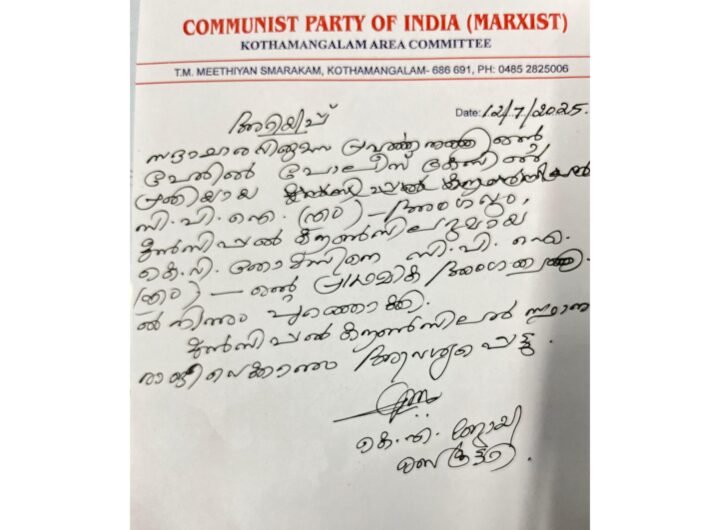 COMMUNIST PARTY OF INDIA (MARXIST)
KOTHAMANGALAM AREA COMMITTEE
T.M. MEETHIYAN SMARAKAM, KOTHAMANGALAM- 686 691, PH: 0485 2825006
Date: 12/7/2025.
അറിയിപ്പ്
സദാചാരവിരുദ്ധ പ്രവർത്തനത്തിന്റെ
പേരിൽ പോലീസ് കേസിൽ
പ്രതിയായ
സി.പി.ഐ.(എം) – അംഗവും,
മുൻസിപ്പൽ കൗൺസിലറുമായ
കെ.വി. തോമസിനെ സി.പി.ഐ.
(എം) – ന്റെ പ്രാഥമിക അംഗത്വത്തി
ൽ നിന്നും പുറത്താക്കി.
മുൻസിപ്പൽ കൗൺസിലർ സ്ഥാനം
രാജിവെക്കാനും ആവശ്യപ്പെട്ടു.
കെ.എ. ജോയി
സെക്രട്ടറി.